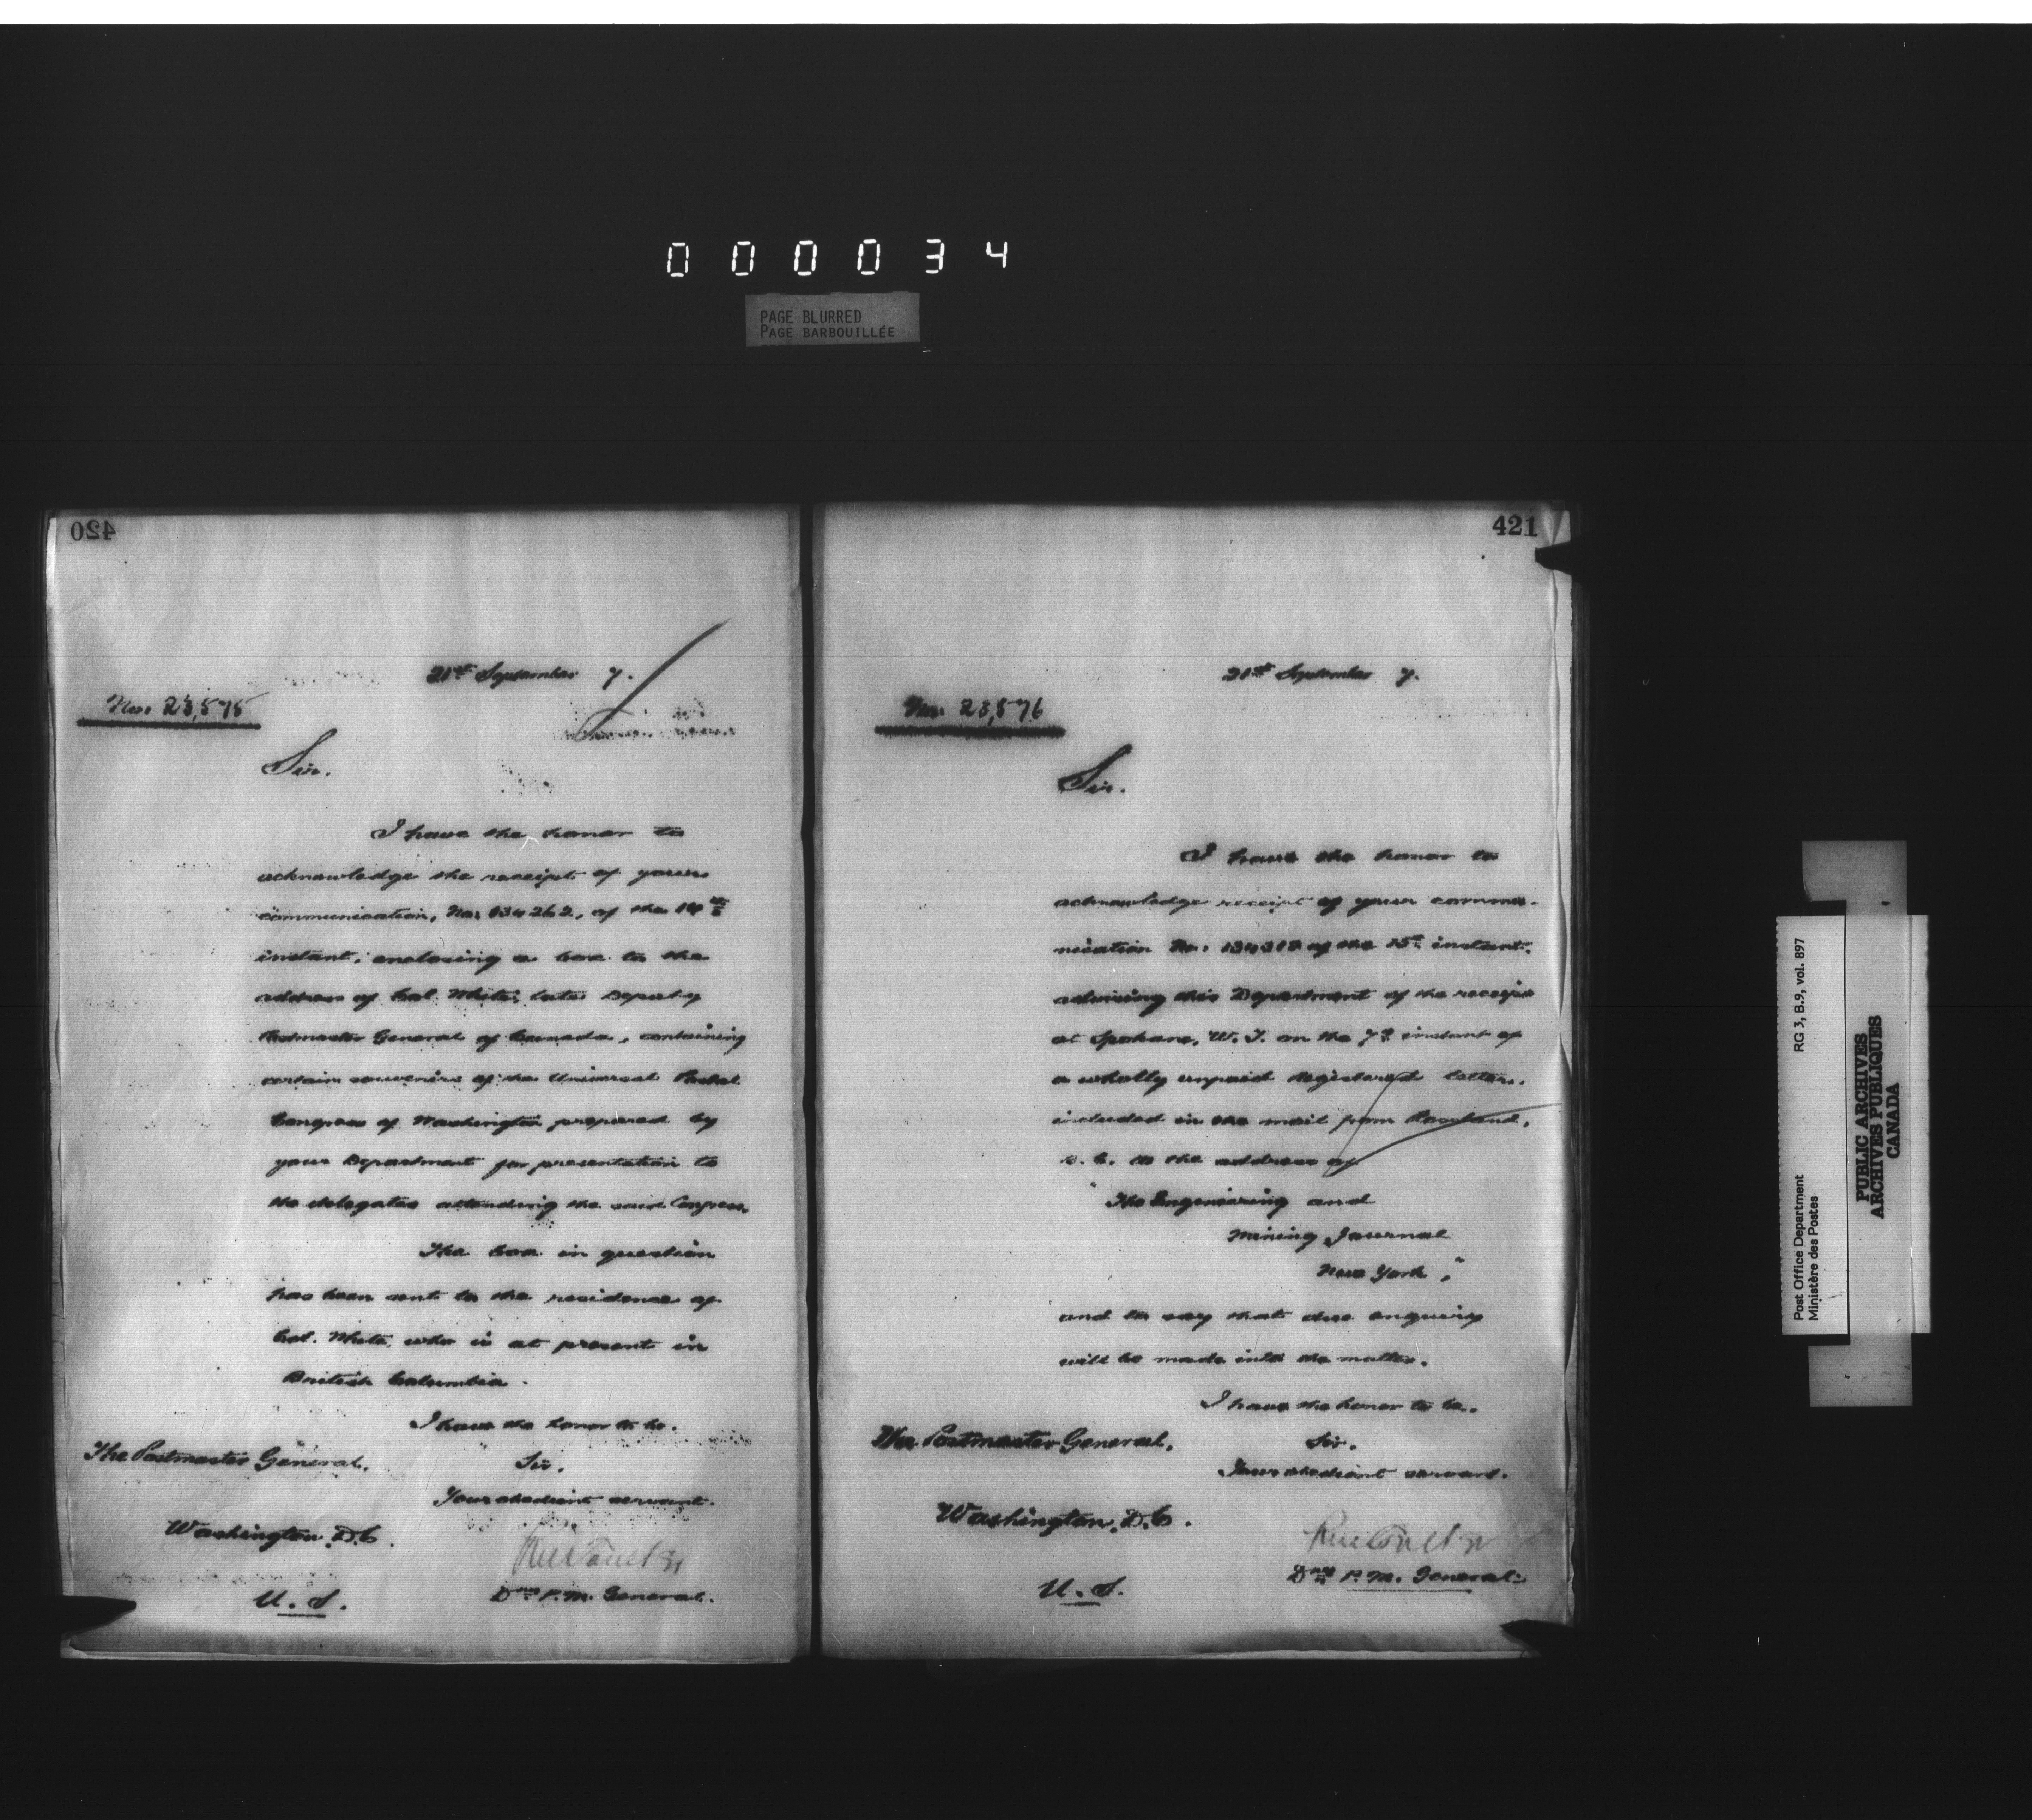 000034
PAGE BLURRED
PAGE BARBOUILLÉE
420
21st September 7.
No. 23,575
Sir.
I have the honor to
acknowledge the receipt of your
communication, No. 134262, of the 14th
instant, enclosing a box to the
address of Col. White, late Deputy
Postmaster General of Canada, containing
certain souvenirs of the Universal Postal
Congress of Washington prepared by
your Department for presentation to
the delegates attending the said Congress.
The box in question
has been sent to the residence of
Col. White, who is at present in
British Columbia.
I have the honor to be.
Sir.
Your obedient servant.
The Postmaster General.
Washington. D.C.
U.S.
P.M. General.
421
21st September 7.
No. 23,576
Sir.
I have the honor to
acknowledge receipt of your commu-
nication No. of the 15th instant.
advising this Department of the receipt
at Spokane, W.T. on the 7th instant of
a wholly unpaid registered letter.
included in the mail from Rossland,
B.C. to the address of
"The Engineering and
Mining Journal
New York,"
and to say that due enquiry
will be made into the matter.
I have the honor to be..
Sir.
Your obedient servant.
The Postmaster General.
Washington. D.C.
U.S.
P.M. General.
Post Office Department
Ministère des Postes
RG 3, B.9, vol. 897
PUBLIC ARCHIVES
ARCHIVES PUBLIQUES
CANADA